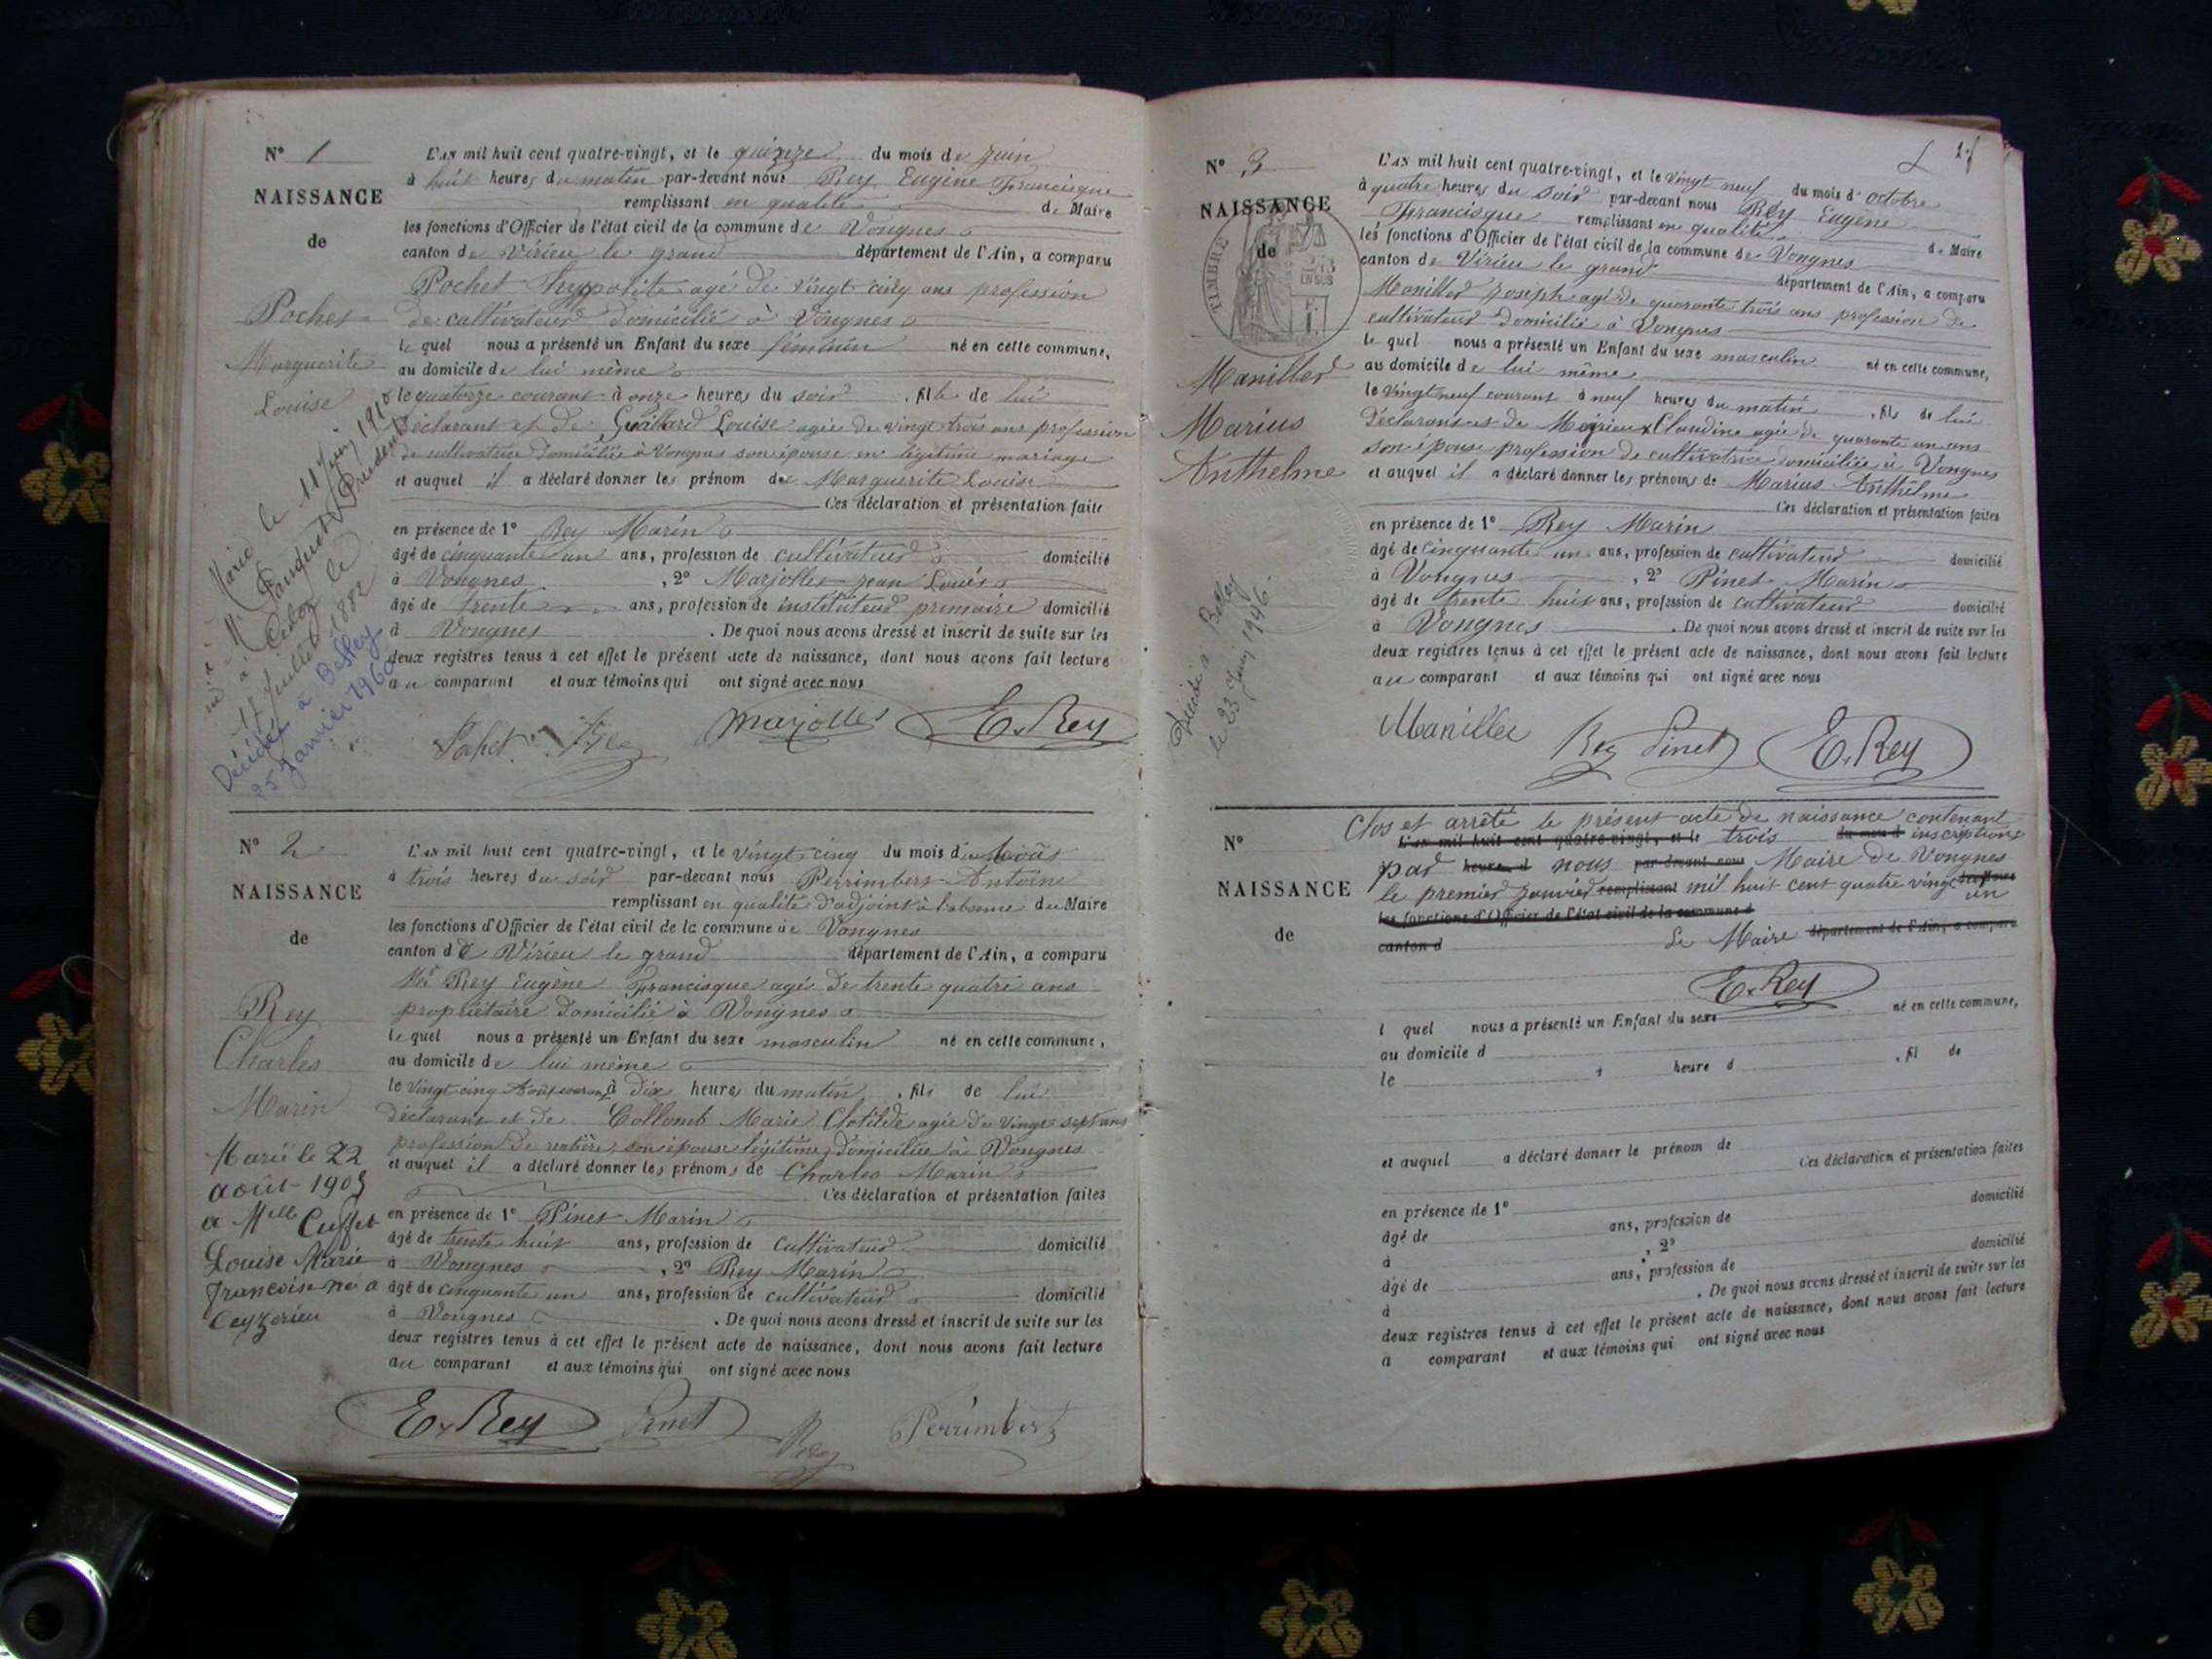 N° 1
NAISSANCE
de
Pochet
Marguerite
Louise
Marié le 11 Juin 1910
à Mr
Prudent
né à
le
17 Juillet 1882
Décédée à Belley
25 Janvier 1960
L'an mil huit cent quatre-vingt, et le quinze du mois de Juin
à huit heures du matin par-devant nous Rey Eugène Francisque
remplissant en qualité de Maire
les fonctions d'Officier de l'état civil de la commune de Vongnes
canton de Virieu le grand département de l'Ain, a comparu
Pochet Hyppolite agé de vingt cinq ans profession
de cultivateur domicilié à Vongnes
le quel nous a présenté un Enfant du sexe féminin né en cette commune,
au domicile de lui même
le quatorze courant à onze heures du soir , fille de lui
déclarant et de Louise agée de vingt trois ans profession
de cultivatrice domiciliée à Vongnes son épouse en légitime mariage
et auquel il a déclaré donner les prénom de Marguerite Louise
Ces déclaration et présentation faite
en présence de 1° Rey Marin
âgé de cinquante un ans, profession de cultivateur domicilié
à Vongnes , 2° Marjollet Jean Louis
âgé de trente ans, profession de instituteur primaire domicilié
à Vongnes . De quoi nous avons dressé et inscrit de suite sur les
deux registres tenus à cet effet le présent acte de naissance, dont nous avons fait lecture
au comparant et aux témoins qui ont signé avec nous
Pochet Rey Marjollet E. Rey
N° 2
NAISSANCE
de
Rey
Charles
Marin
Marié le 22
août 1905
a Melle Cuffet
Louise Marie
françoise né a
Ceyzerieu
L'an mil huit cent quatre-vingt, et le vingt cinq du mois d'Août
à trois heures du soir par-devant nous Perrimbert Antoine
remplissant en qualité d'adjoint à l'absence du Maire
les fonctions d'Officier de l'état civil de la commune de Vongnes
canton de Virieu le grand département de l'Ain, a comparu
Mr Rey Eugène Francisque agé de trente quatre ans
propriétaire domicilié à Vongnes
le quel nous a présenté un Enfant du sexe masculin né en cette commune,
au domicile de lui même
le vingt cinq Août courant à dix heures du matin , fils de lui
déclarant et de Collomb Marie Clotilde agée de vingt sept ans
profession de rentière, son épouse légitime, domiciliée à Vongnes
et auquel il a déclaré donner les prénoms de Charles Marin
Ces déclaration et présentation faites
en présence de 1° Pinet Marin
âgé de trente huit ans, profession de cultivateur domicilié
à Vongnes , 2° Rey Marin
âgé de cinquante un ans, profession de cultivateur domicilié
à Vongnes . De quoi nous avons dressé et inscrit de suite sur les
deux registres tenus à cet effet le présent acte de naissance, dont nous avons fait lecture
au comparant et aux témoins qui ont signé avec nous
E. Rey Pinet Rey Perrimbert
N° 3
NAISSANCE
de
TIMBRE
EN SUS
Maniller
Marius
Anthelme
Décédé à Belley
le 23 Juin 1946
L'an mil huit cent quatre-vingt, et le vingt neuf du mois d'octobre
à quatre heures du soir par-devant nous Rey Eugène
Francisque remplissant en qualité de Maire
les fonctions d'Officier de l'état civil de la commune de Vongnes
canton de Virieu le grand département de l'Ain, a comparu
Maniller Joseph agé de quarante trois ans profession de
cultivateur domicilié à Vongnes
le quel nous a présenté un Enfant du sexe masculin né en cette commune,
au domicile de lui même
le vingt neuf courant à neuf heures du matin , fils de lui
déclarant et de Claudine agée de quarante un ans
son épouse profession de cultivatrice domiciliée à Vongnes
et auquel il a déclaré donner les prénoms de Marius Anthelme
Ces déclaration et présentation faites
en présence de 1° Rey Marin
âgé de cinquante un ans, profession de cultivateur domicilié
à Vongnes , 2° Pinet Marin
âgé de trente huit ans, profession de cultivateur domicilié
à Vongnes . De quoi nous avons dressé et inscrit de suite sur les
deux registres tenus à cet effet le présent acte de naissance, dont nous avons fait lecture
au comparant et aux témoins qui ont signé avec nous
Maniller Rey Pinet E. Rey
N°
NAISSANCE
de
Clos et arrêté le présent acte de naissance contenant
L'an mil huit cent quatre-vingt, et le trois du mois d inscriptions
par heure d nous par-devant nous Maire de Vongnes
le premier Janvier remplissant mil huit cent quatre vingt un
les fonctions d'Officier de l'état civil de la commune d
canton d Le Maire département de l'Ain, a comparu
E. Rey
l quel nous a présenté un Enfant du sexe né en cette commune,
au domicile d
le à heure d , fil de
et auquel a déclaré donner le prénom de
Ces déclaration et présentation faites
en présence de 1°
âgé de ans, profession de domicilié
à , 2°
âgé de ans, profession de domicilié
à . De quoi nous avons dressé et inscrit de suite sur les
deux registres tenus à cet effet le présent acte de naissance, dont nous avons fait lecture
a comparant et aux témoins qui ont signé avec nous